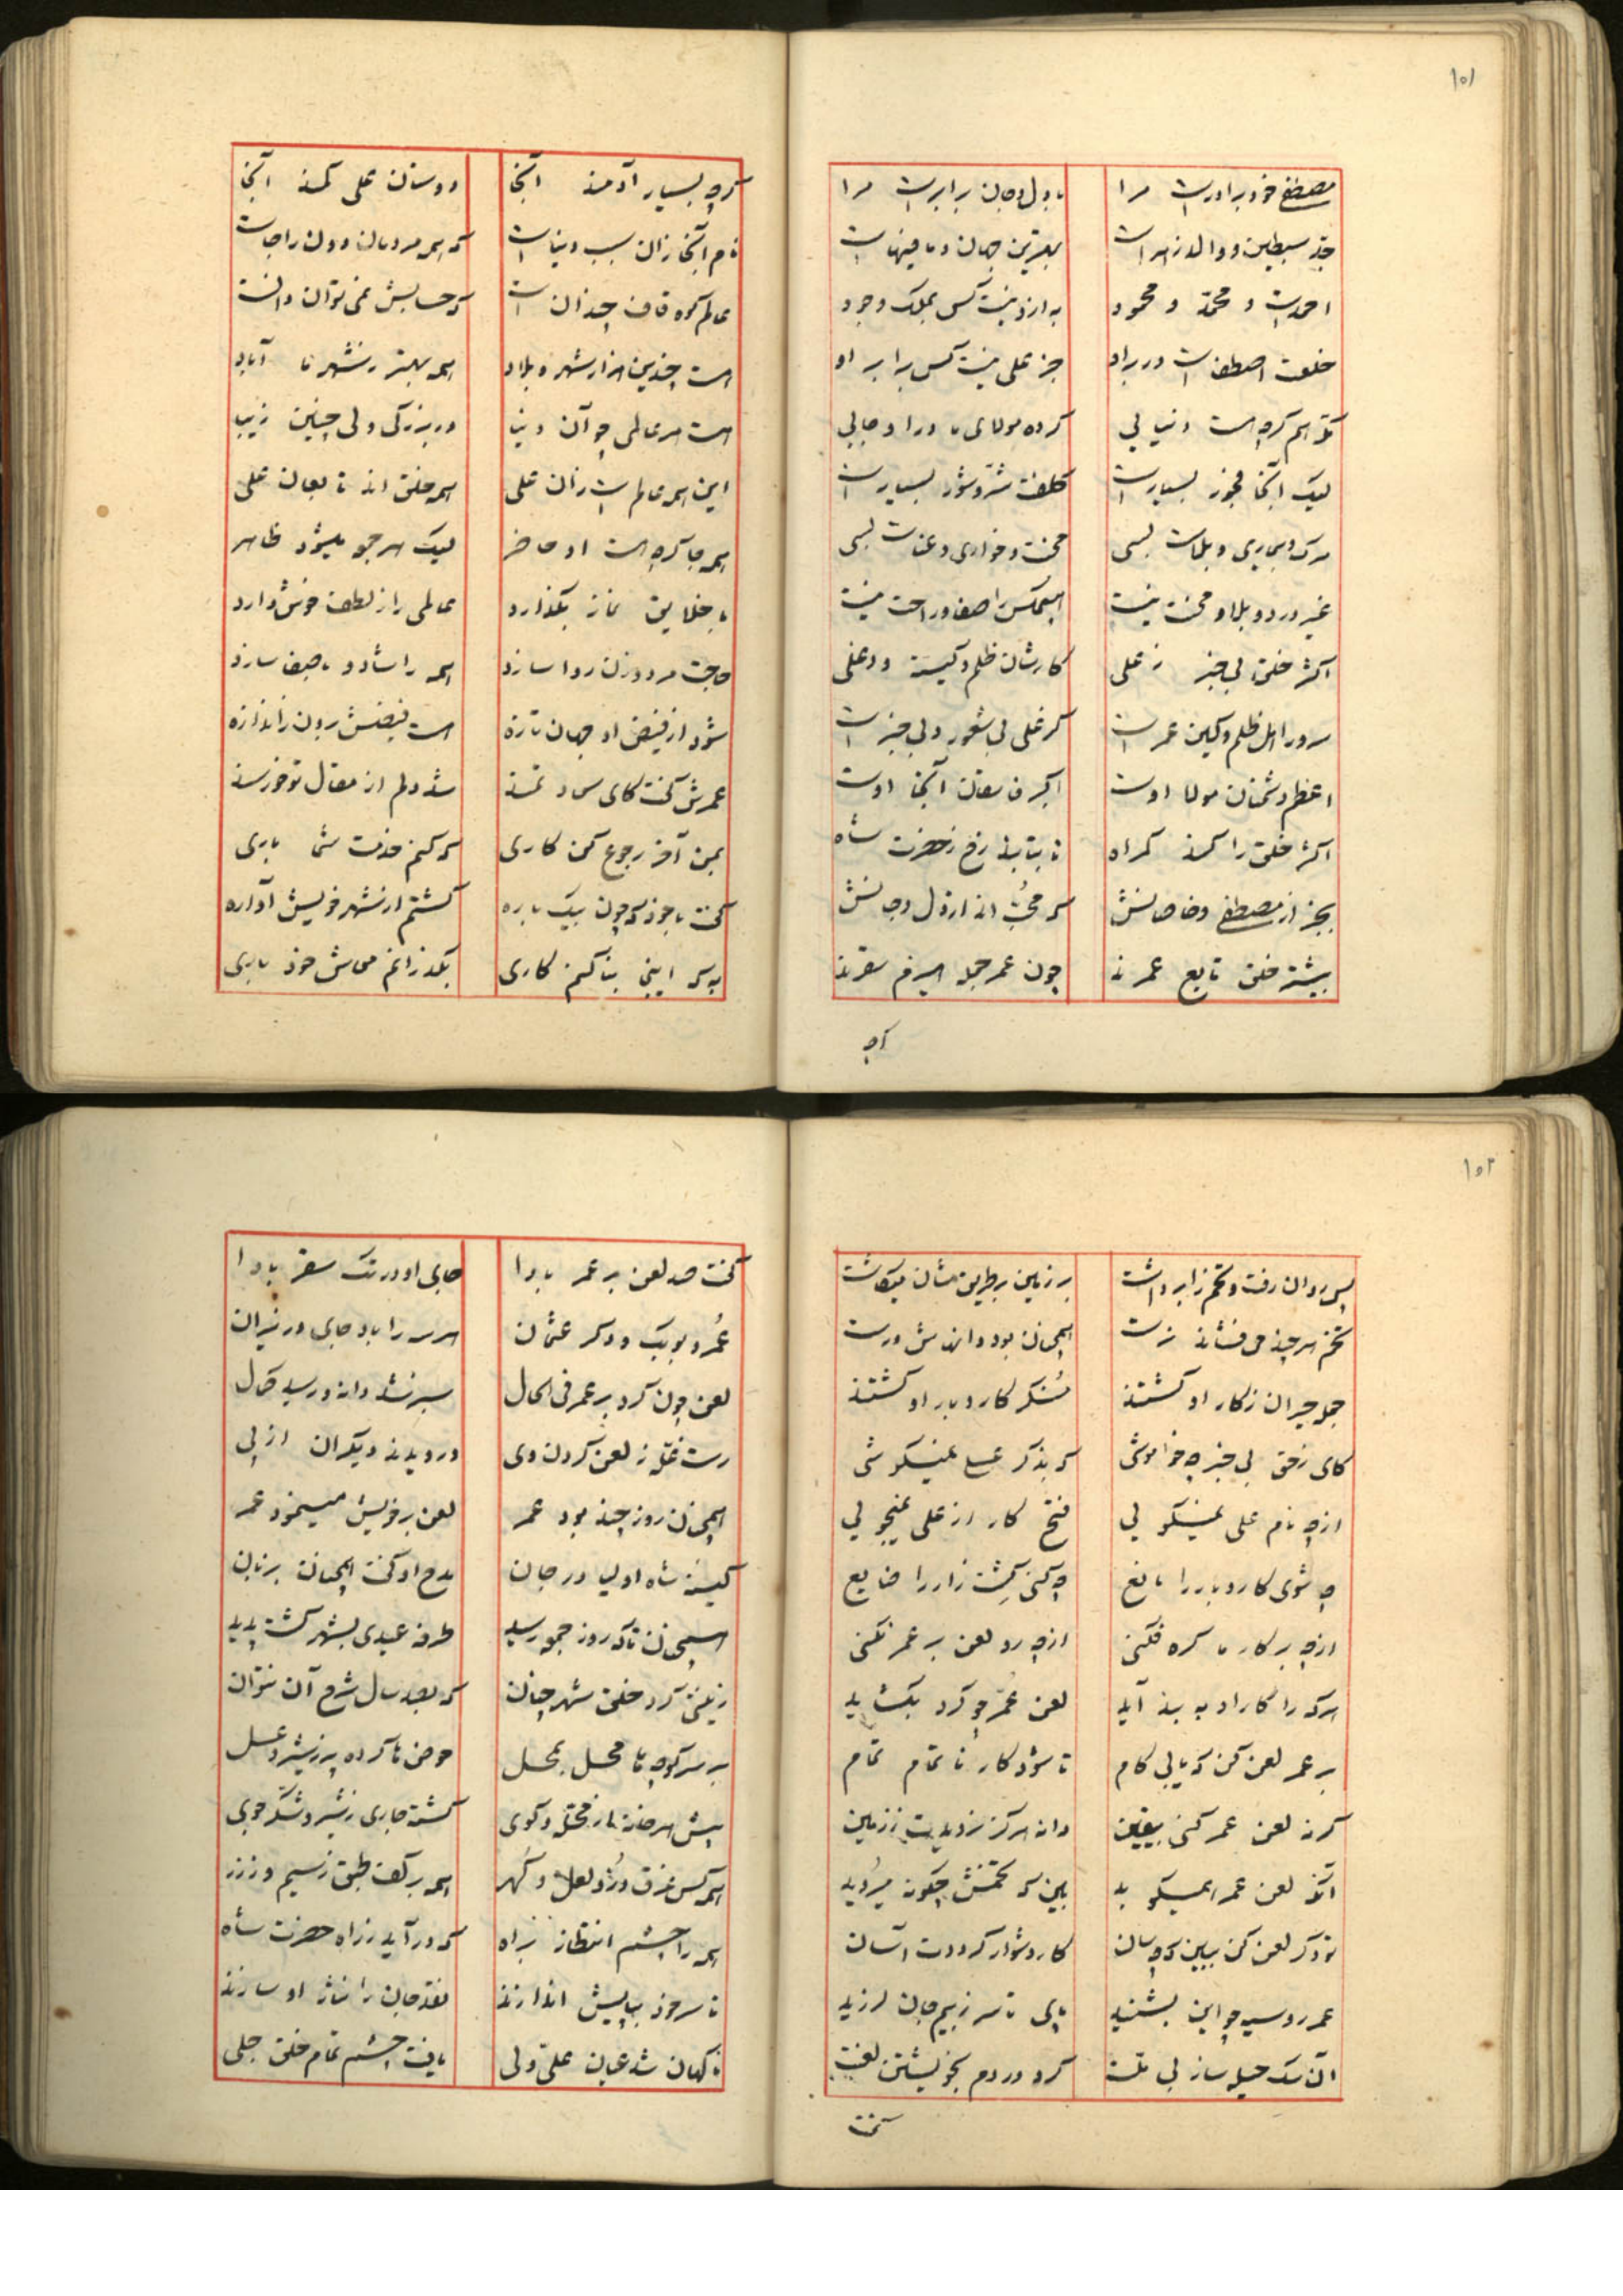 ۱۵۱
مصطفی خود برادرست مرا با دل و جان برابرست مرا
جد سبطین و والد زهراست بهترین جهان و مافیهاست
احمدست و محمد و محمود به ازو نیست کس بملک وجود
خلعت اصطفاست در بر او جز علی نیست کس برابر او
کرده مولای ما ورا والی
لیک آنجا فجور بسیارست کلفت شر و شور بسیارست
مرک و بیماری و بلاست بسی محنت و خواری و عناست بسی
غیر درد و بلا و محنت نیست هیچکس را صفا و راحت نیست
اکثر خلق بی خبر ز علی کارشان ظلم و کینه و دغلی
سرور اهل ظلم و کین عمرست کز علی بی شعور و بی خبرست
اعظم دشمنان مولا اوست اکبر فاسقان آنجا اوست
اکثر خلق را کند کمراه تا بتابند رخ ز حضرت شاه
بجز از مصطفی و خاصانش که محب اند از دل و جانش
بیشتر خلق تابع عمرند چون عمر جمله هیزم سقرند
کرچه بسیار آدمند آنجا دوستان علی کمند آنجا
نام آنجا ازان سبب دنیاست که همه مردمان دون راجاست
عالم کوه قاف چندان است که حسابش نمی توان دانست
هست چندین هزار شهر و بلاد همه بهتر ز شهرها آباد
هست هر عالمی چو آن دنیا در بزرکی ولی چنین زیبا
این همه عالم است زان علی همه خلق اند تابعان علی
همه جا کرچه هست او حاضر لیک هر جمعه میشود ظاهر
با خلایق نماز بکذارد عالمی را ز لطف خوش دارد
حاجت مرد و زن روا سازد همه را شاد و باصفا سازد
شود از فیض او جهان تازه هست فیضش برون ز اندازه
عمرش کفت کای سعادتمند شد دلم از مقال تو خرسند
بمن آخر رجوع کن کاری که کنم خدمت شما باری
کفت با خود که چون بیک باره کشتم از شهر خویش آواره
به که اینجا بنا کنم کاری بکذرانم معاش خود باری
آنچه
۱۵۲
پس روان رفت و تخمزا برداشت بر زمین بر طریق شان میکاشت
تخم هر چند می فشاند نرست همچنان بود دانهاش درست
جمله حیران ز کار او کشتند منکر کار و بار او کشتند
کای ز حق بی خبر چه خواموشی که بذکر عمر نمیکوشی
ازچه نام علی نمیکویی فتح کار از علی نمیجویی
چه شوی کار و بار را مانع چه کنی کشت زار را ضایع
ازچه بر کار ما کره فکنی ازچه رو لعن بر عمر نکنی
هرکه را کار او به بند آید لعن عمر چو کرد بکشاید
بر عمر لعن کن که یابی کام تا شود کار نا تمام تمام
کر نه لعن عمر کنی بیقین دانه هرکز نرویدت ز زمین
آنکه لعن عمر همیکوید ببین که تخمش چکونه میروید
تو دکر لعن کن ببین که چسان کار دشوار کرددت آسان
عمر رو سیه چو این بشنید پای تا سر ز بیم جان لرزید
آن سک حیله ساز بی ملت کرد در دم بخویشتن لعنت
کفت صد لعن بر عمر بادا جای او در تک سقر بادا
عمر و بوبک و دکر عثمان هر سه را باد جای در نیران
لعن چون کرد بر عمر فی الحال سبز شد دانه و رسید کمال
رست غله ز لعن کردن وی درویدند دیکران از پی
همچنان روز چند بود عمر لعن بر خویش مینمود عمر
کینه شاه اولیا در جان مدح او کفت همچنانت بزبان
همچنان تا که روز جمعه رسید طرفه عیدی بشهر کشت پدید
زینتی کرد خلق شهر چنان که بصد سال شرح آن نتوان
بر سر کوچها محل بمحل حوض ها کرده پر ز شیر و عسل
پیش هر خانه از محله و کوی کشته جاری ز شیر و شکر جوی
همه کس غرق در و لعل و کهر همه بر کف طبق ز سیم و ز زر
همه را چشم انتظار براه که درآید ز راه حضرت شاه
تا سر خود بپایش اندازند نقد جان را نثار او سازند
ناکهان شد عیان علی ولی یافت چشم تمام خلق جلی
کفت